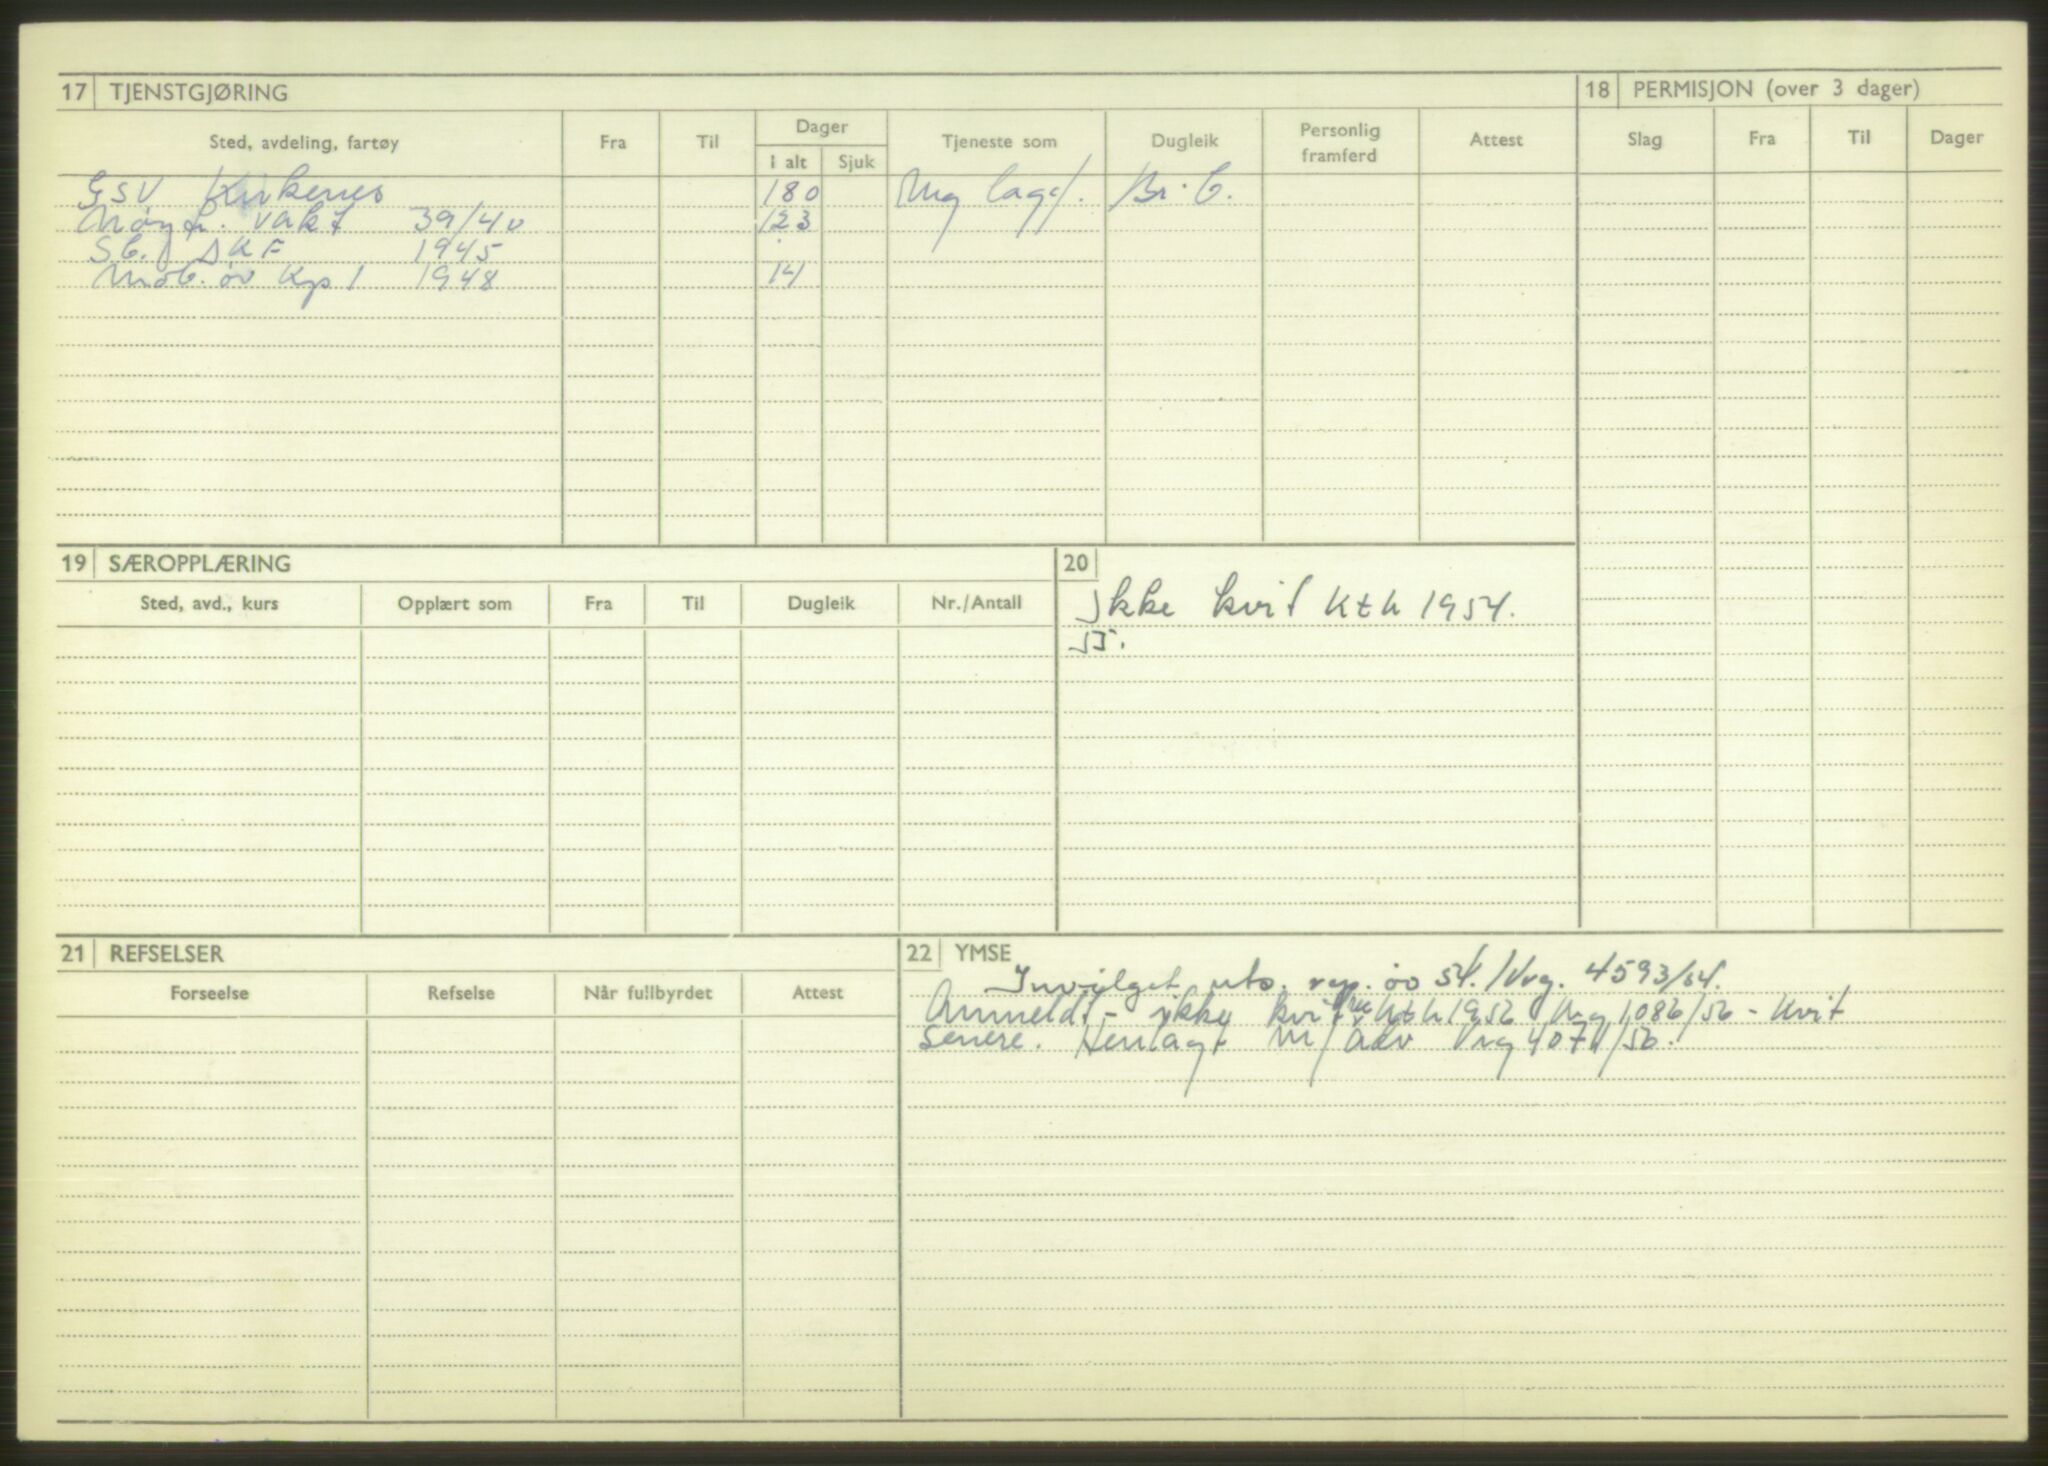 17 TJENSTGJØRING
18 PERMISJON (over 3 dager)
Sted, avdeling, fartøy Fra Til Dager Tjeneste som Dugleik Personlig framferd Attest
I alt Sjuk
Slag Fra Til Dager
GSV Kirkenes 180 Mg lagf. Br.b.
Nøytr. vakt 39/40 123
Sb. DKF 1945
Mob. øv Kp 1 1948 14
19 SÆROPPLÆRING
20
Sted, avd., kurs Opplært som Fra Til Dugleik Nr./Antall
Ikke kvit Kth 1954.
55.
21 REFSELSER
22 YMSE
Forseelse Refselse Når fullbyrdet Attest
Innvilget uts. rep. øv 54. / Vrg. 4593/54.
Anmeldt - ikke kvit Kth 1956 1086/56 - Kvit
senere. Henlagt m/ adv Vrg 4071/56.